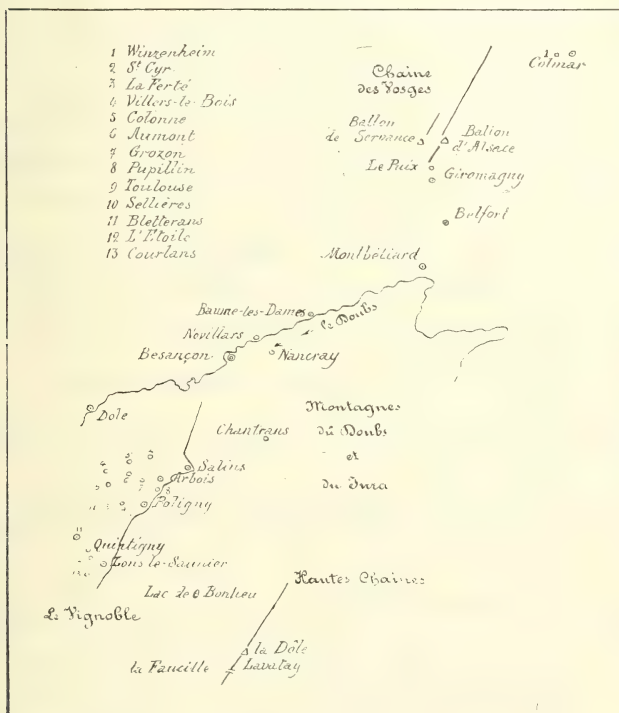 1 Winzenheim
2 St Cyr
3 La Ferté
4 Villers-le-Bois
5 Colonne
6 Aumont
7 Grozon
8 Pupillin
9 Toulouse
10 Sellières
11 Bletterans
12 L'Etoile
13 Courlans
1
Colmar
Chaine
des Vosges
Ballon
de Servance
Ballon
d'Alsace
Le Puix
Giromagny
Belfort
Montbéliard
Baume-les-Dames
le Doubs
Novillars
Besançon
Nancray
Dole
Montagnes
du Doubs
et
du Jura
Chantrans
Salins
Arbois
8
Poligny
11
Quintigny
Lons-le-Saunier
Lac de Bonlieu
Hautes Chaines
Le Vignoble
la Dôle
la Faucille
Lavatay